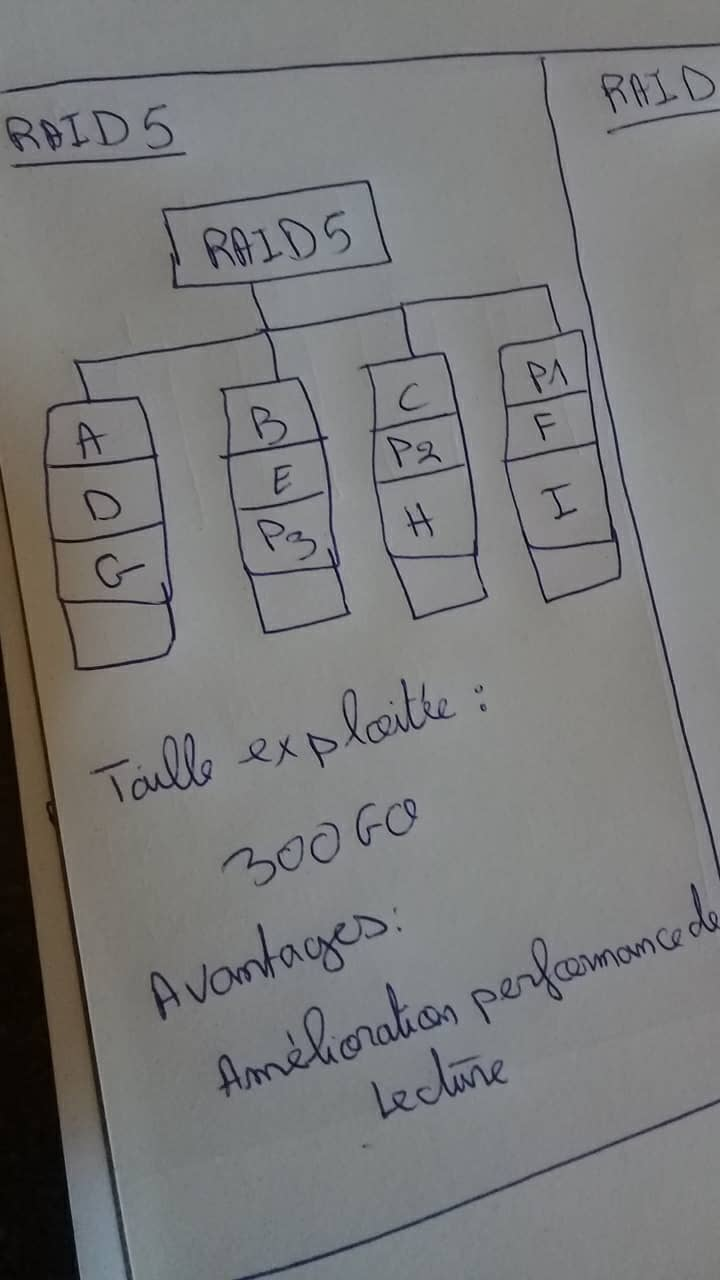 RAID5
RAID
RAID5
A B C P1
D E P2 F
G P3 H I
Taille exploitée :
300 GO
Avantages:
Amélioration performance de
Lecture